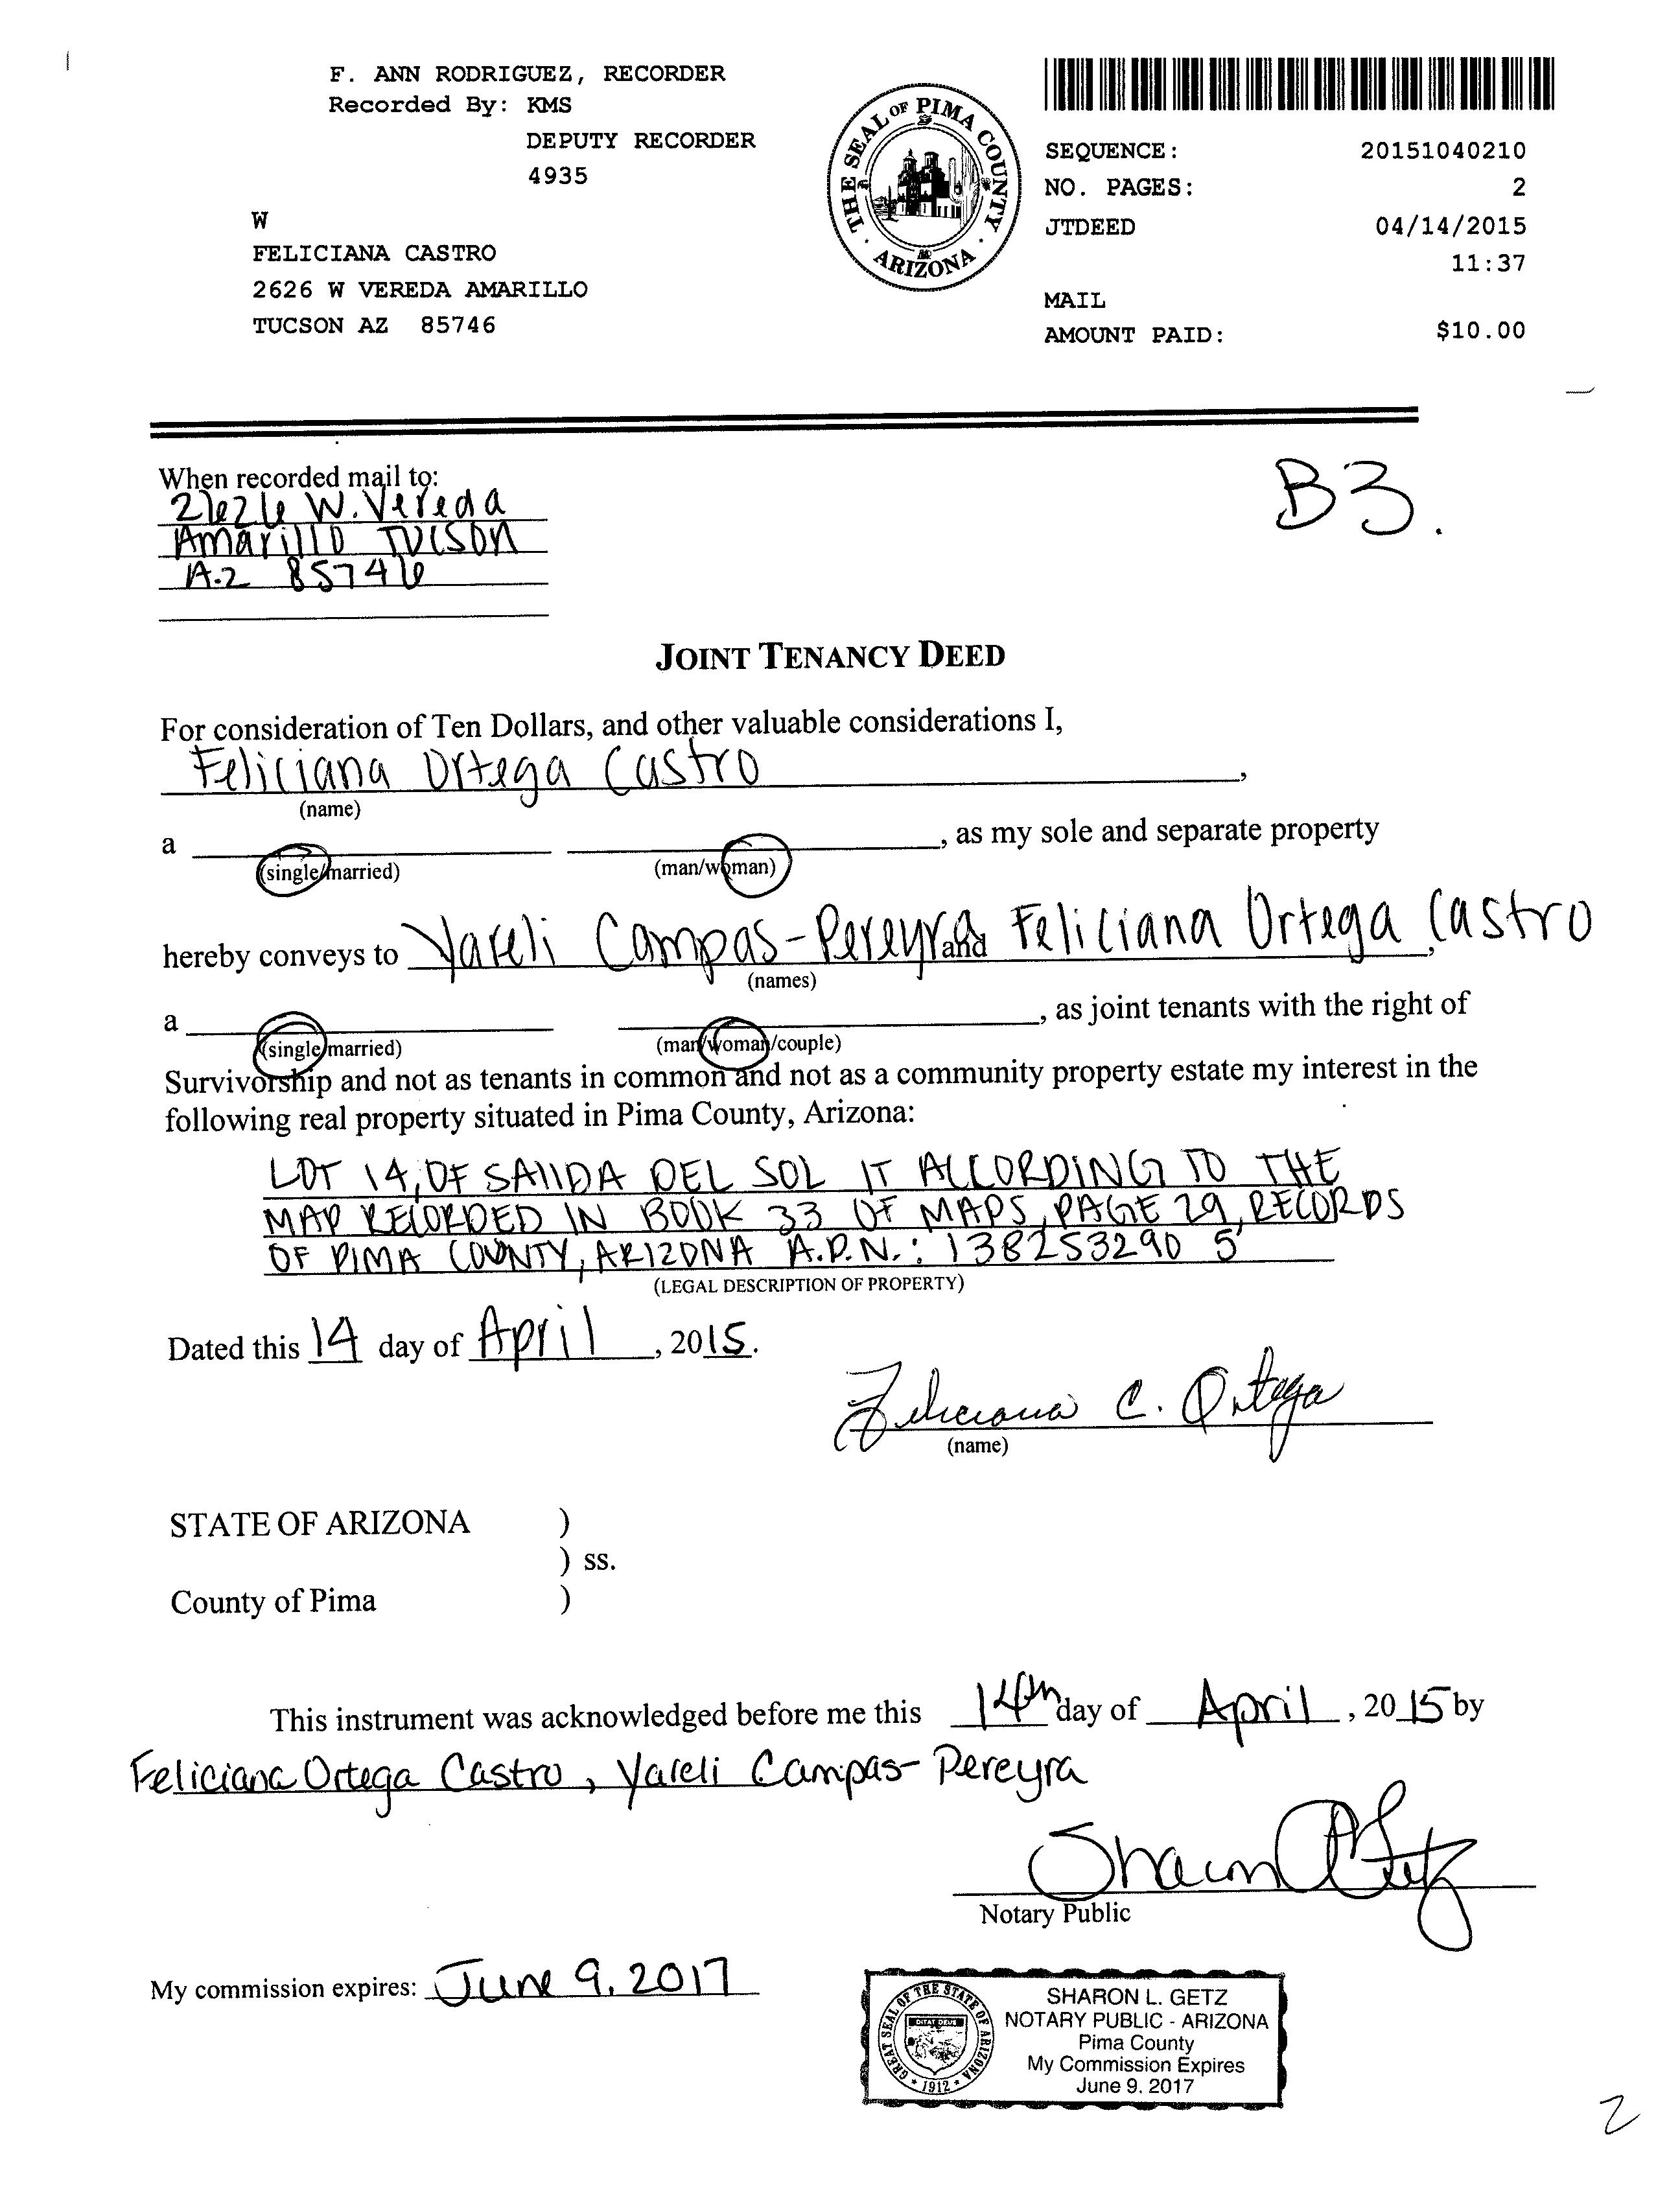 F. ANN RODRIGUEZ, RECORDER
Recorded By: KMS
DEPUTY RECORDER
4935
W
FELICIANA CASTRO
2626 W VEREDA AMARILLO
TUCSON AZ 85746
THE SEAL OF PIMA COUNTY
ARIZONA
SEQUENCE: 20151040210
NO. PAGES: 2
JTDEED 04/14/2015
11:37
MAIL
AMOUNT PAID: $10.00
When recorded mail to:
2626 W. Vereda
Amarillo TUCSON
A.Z 85746
B3.
JOINT TENANCY DEED
For consideration of Ten Dollars, and other valuable considerations I,
Feliciana Ortega Castro,
(name)
a , as my sole and separate property
(single/married) (man/woman)
hereby conveys to Yareli Campas-Pereyra and Feliciana Ortega Castro,
(names)
a , as joint tenants with the right of
(single/married) (man/woman/couple)
Survivorship and not as tenants in common and not as a community property estate my interest in the
following real property situated in Pima County, Arizona:
LOT 14, OF SAlIDA DEL SOL IT ACCORDING TO THE
MAP RECORDED IN BOOK 33 OF MAPS, PAGE 29, RECORDS
OF PIMA COUNTY, ARIZONA A.P.N.: 138253290 5
(LEGAL DESCRIPTION OF PROPERTY)
Dated this 14 day of April, 2015.
Feliciana C. Ortega
(name)
STATE OF ARIZONA )
) ss.
County of Pima )
This instrument was acknowledged before me this 14th day of April, 2015 by
Feliciana Ortega Castro, Yareli Campas-Pereyra
Sharon L Getz
Notary Public
My commission expires: June 9, 2017
GREAT SEAL OF THE STATE OF ARIZONA
DITAT DEUS
1912
SHARON L. GETZ
NOTARY PUBLIC - ARIZONA
Pima County
My Commission Expires
June 9, 2017
2